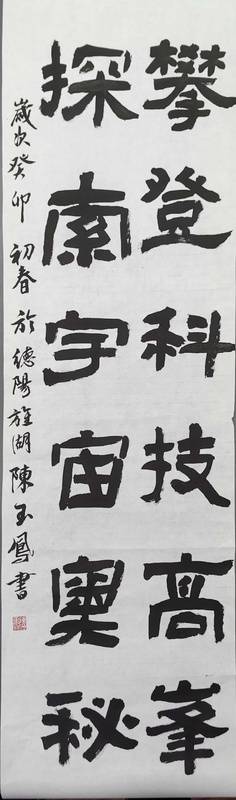 攀登科技高峯
探索宇宙奧秘
歲次癸卯初春於德陽旌湖陳玉鳳書